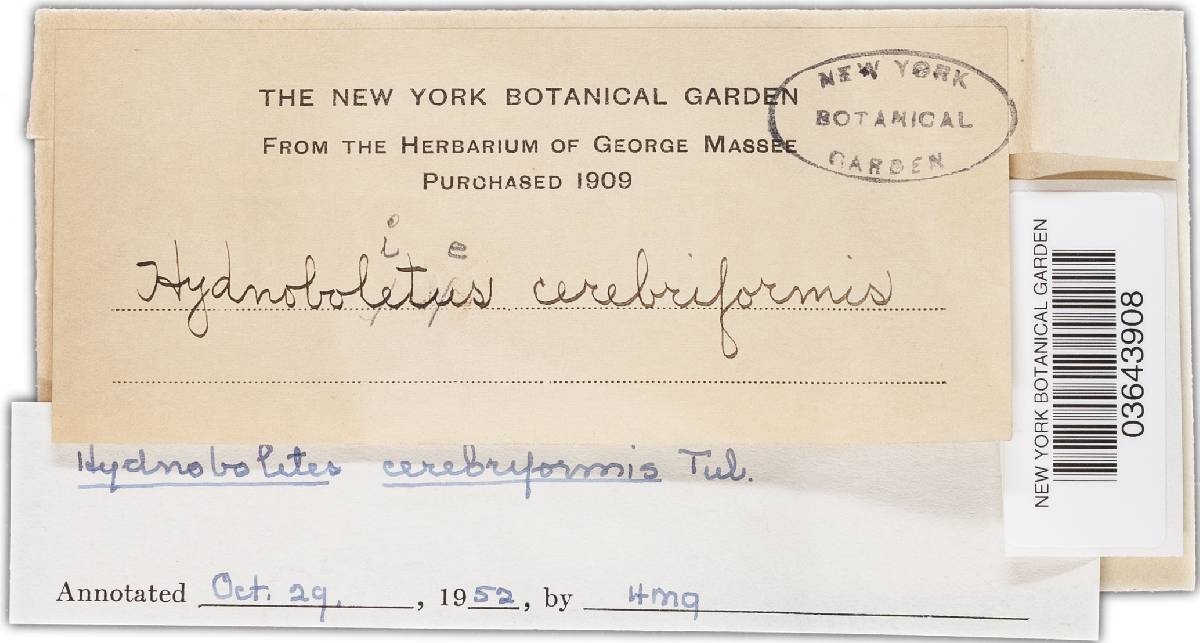 THE NEW YORK BOTANICAL GARDEN
FROM THE HERBARIUM OF GEORGE MASSEE
PURCHASED 1909
NEW YORK
BOTANICAL
GARDEN
i e
Hydnoboletus cerebriformis
Hydnoboletes cerebriformis Tul.
Annotated Oct. 29, 1952, by HMG
NEW YORK BOTANICAL GARDEN
03643908